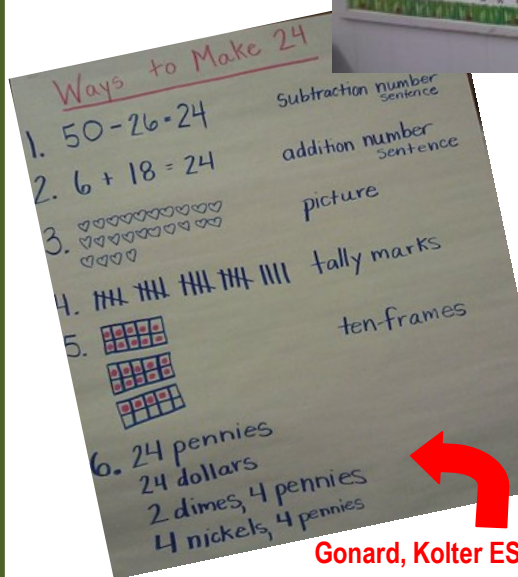 Ways to Make 24
1. 50-26=24 subtraction number sentence
2. 6 + 18 = 24 addition number sentence
3. picture
4. tally marks
5. ten-frames
6. 24 pennies
24 dollars
2 dimes, 4 pennies
4 nickels, 4 pennies
Gonard, Kolter ES